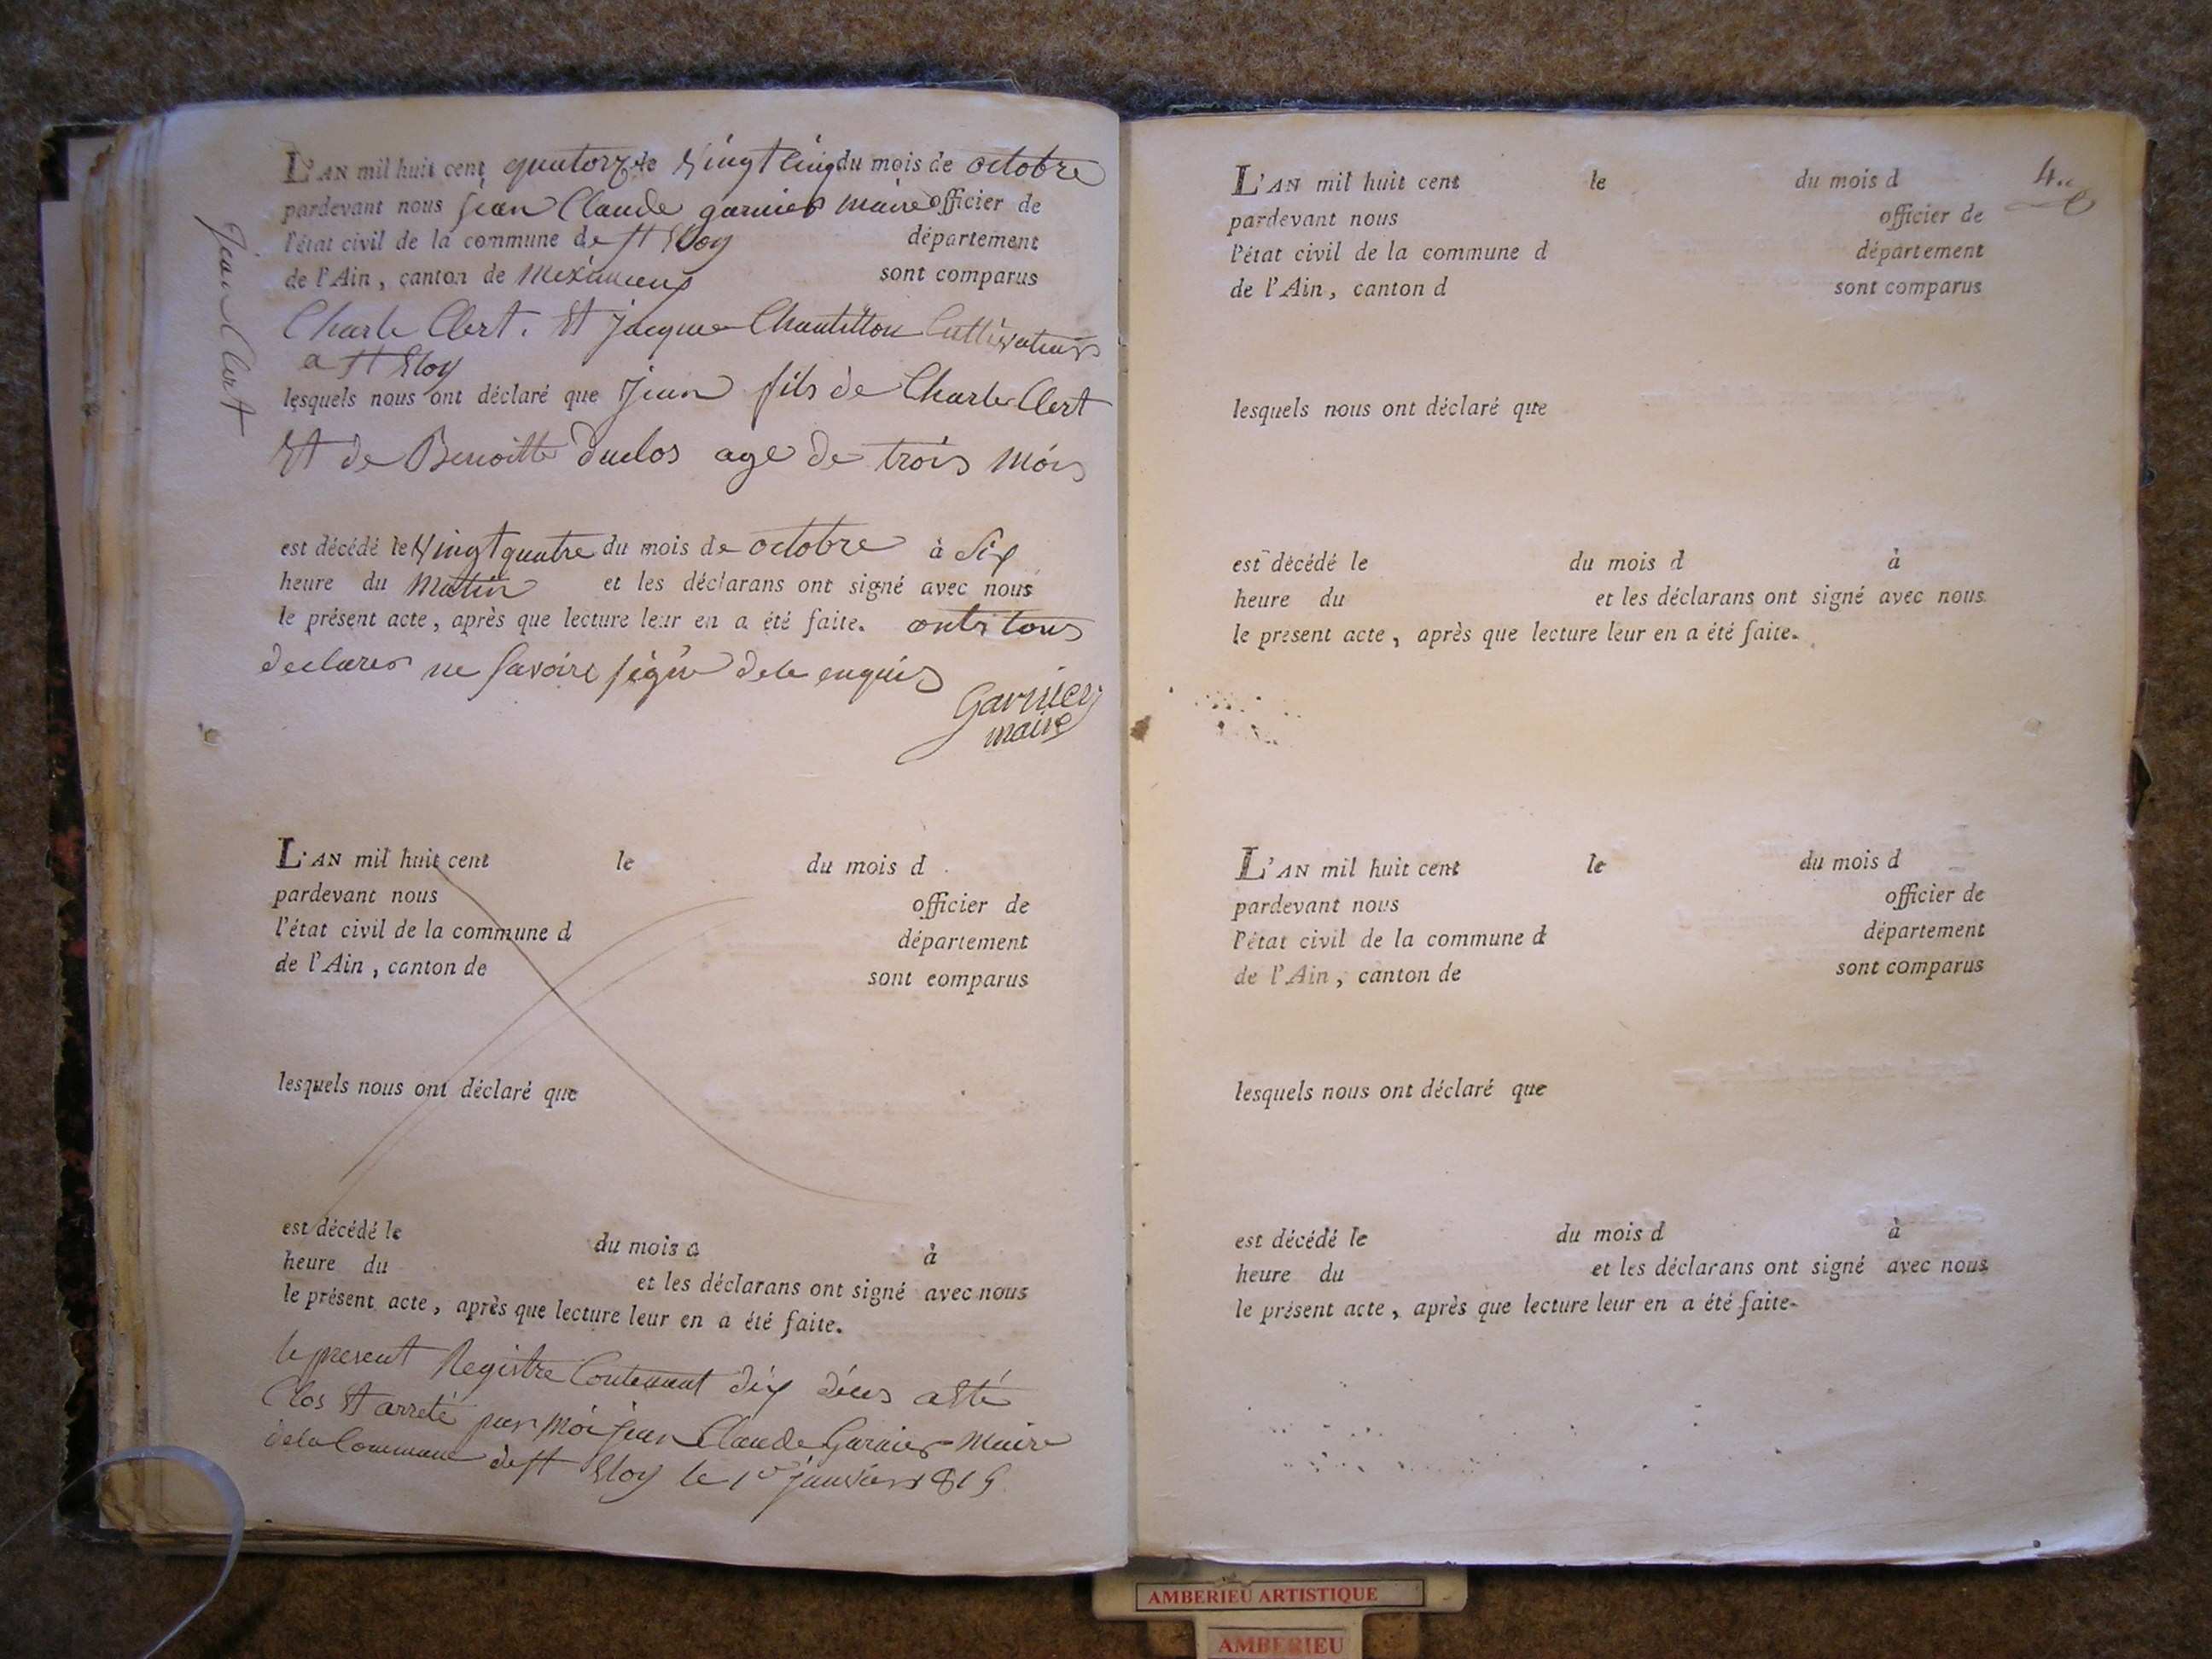 Jean Clert
L'AN mil huit cent quatorze le vingt cinq du mois de octobre
pardevant nous jean Claude garnier maire officier de
l'état civil de la commune de st Eloy département
de l'Ain, canton de meximieux sont comparus
Charle Clert. Et jacque Chantillon Cultivateurs
a st Eloy
lesquels nous ont déclaré que jean fils de Charle Clert
Et de Benoitte duclos age de trois mois
est décédé le vingt quatre du mois de octobre à six
heure du matin et les déclarans ont signé avec nous
le présent acte, après que lecture leur en a été faite. ont tous
declarer ne savoire signé de le enquis
Garnier
maire
L'AN mil huit cent le du mois d
pardevant nous officier de
l'état civil de la commune d département
de l'Ain, canton de sont comparus
lesquels nous ont déclaré que
est décédé le du mois d à
heure du et les déclarans ont signé avec nous
le présent acte, après que lecture leur en a été faite.
le present Registre Contenant dix déces a Eté
Clos Et arreté par moi jean Claude Garnier Maire
de la Commune de st Eloy le 1er janvier 1815
L'AN mil huit cent le du mois d
pardevant nous officier de
l'état civil de la commune d département
de l'Ain, canton d sont comparus
lesquels nous ont déclaré que
est décédé le du mois d à
heure du et les déclarans ont signé avec nous
le présent acte, après que lecture leur en a été faite.
L'AN mil huit cent le du mois d
pardevant nous officier de
l'état civil de la commune d département
de l'Ain, canton de sont comparus
lesquels nous ont déclaré que
est décédé le du mois d à
heure du et les déclarans ont signé avec nous
le présent acte, après que lecture leur en a été faite.
AMBERIEU ARTISTIQUE
AMBERIEU